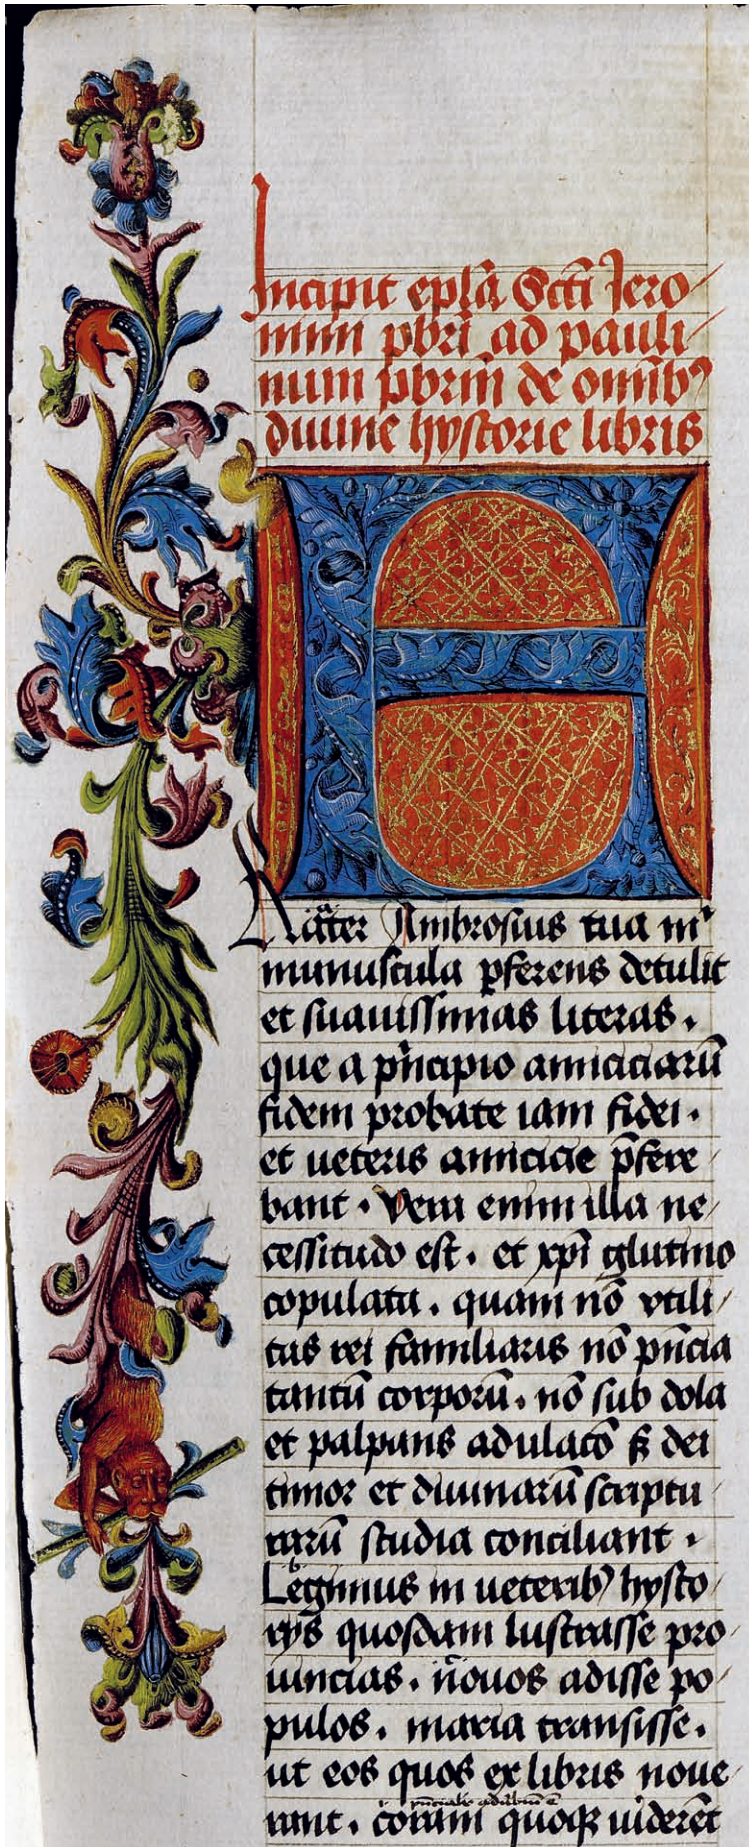 Incipit epl̄a Sc̄ti Jero⸗
nimi pb̄ri ad pauli⸗
num pb̄rm̄ de om̄ib⁹
diuine hystorie libris
F
Rat̄er Ambrosius tua mͥ
munuscula ꝑferens detulit
et suauissimas literas .
que a pͥncipio amiciciarū
fidem probate iam fidei .
et ueteris amicicie p̄fere⸗
bant . Vera enim illa ne⸗
cessitudo est . et xp̄i glutino
copulata . quam nō vtili⸗
tas rei familiaris nō pn̄cia
tantū corporū . nō sub dola
et palpans adulac̄o sꝫ dei
timor et diuinarū scriptu⸗
rarū studia conciliant .
Legimus in ueterib⁹ hysto⸗
rijs quosdam lustrasse pro⸗
uincias . nouos adisse po⸗
pulos . maria transisse .
ut eos quos ex libris noue⸗
rant . coram quoqꝫ uiderēt